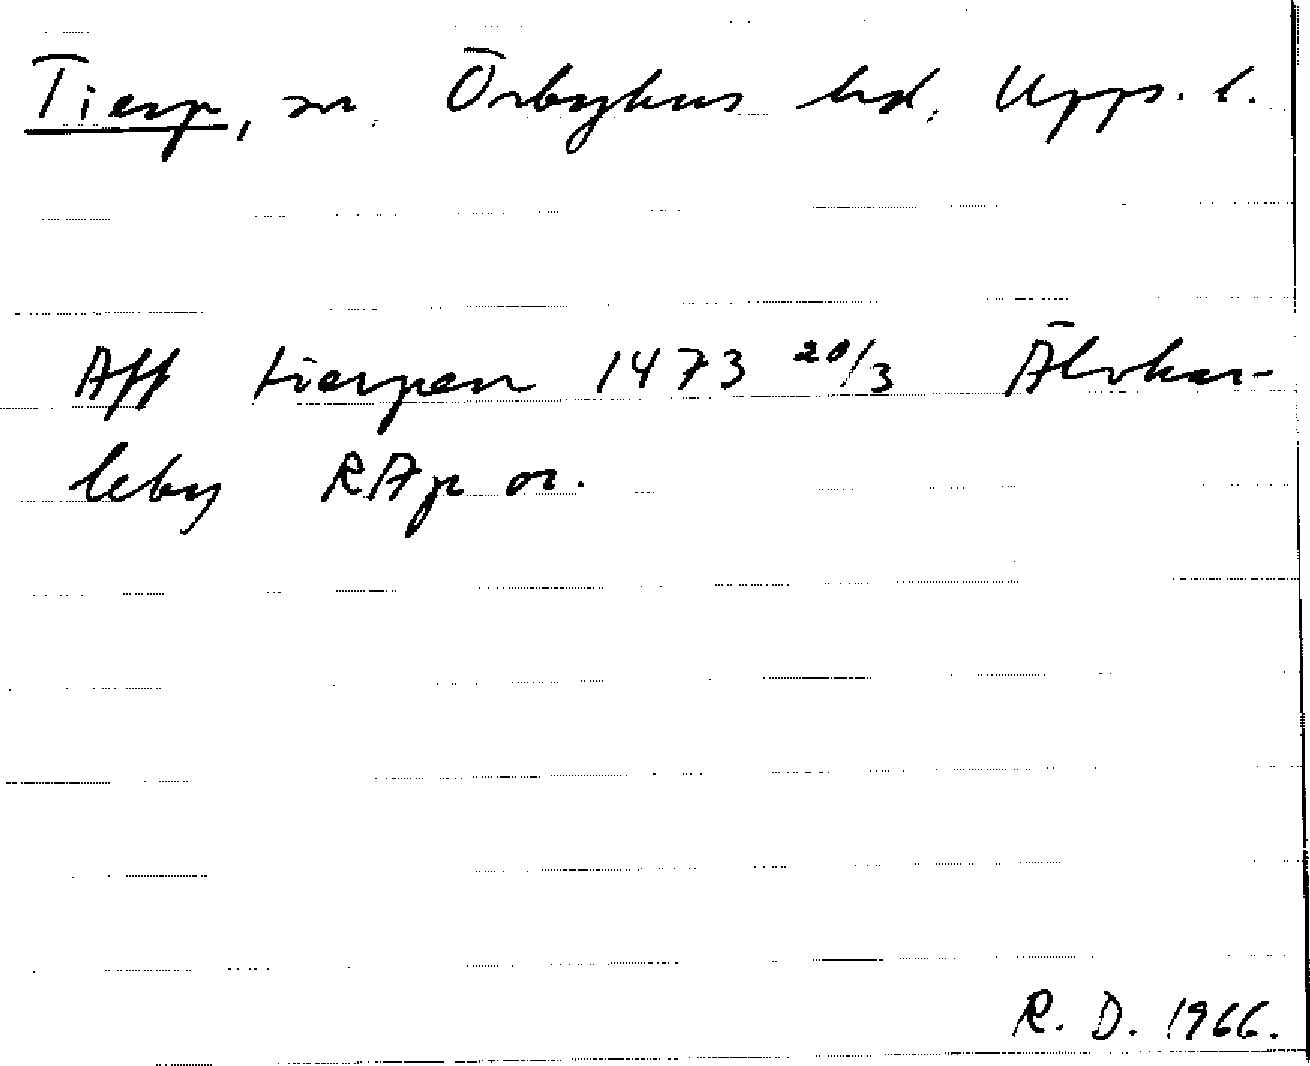 Tierp, sn Örbyhus hd. Upps. l.
Aff tierpen 1473 20/3 Älvkar-
leby RAp or.
R. D. 1966.